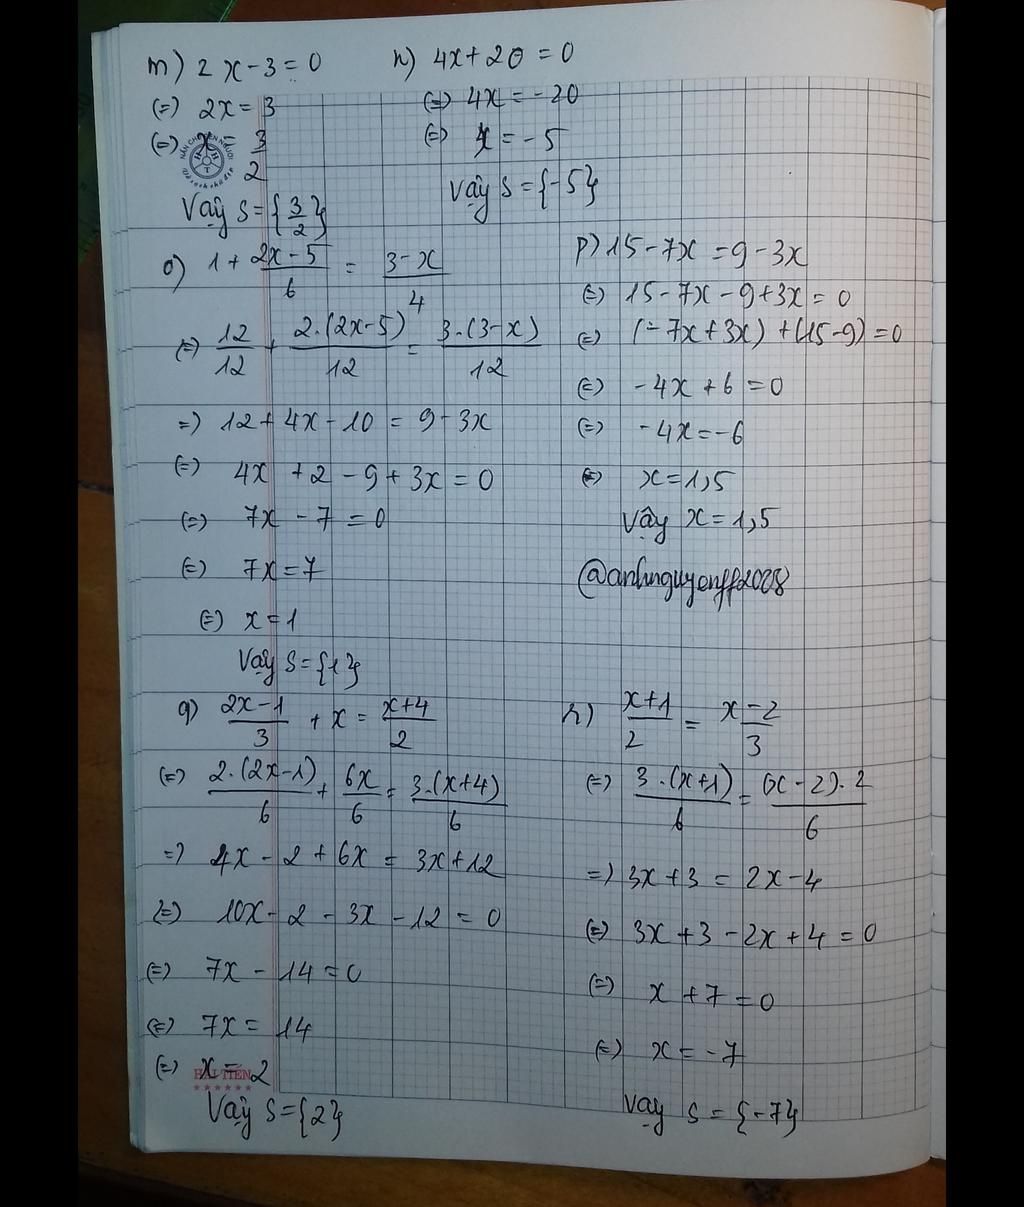 m) 2x-3=0
(=) 2x=3
(=) x= 3/2
Vậy S={3/2}
n) 4x+20=0
(=) 4x=-20
(=) x=-5
Vậy S={-5}
o) 1+ (2x-5)/6 = (3-x)/4
(=) 12/12 + 2.(2x-5)/12 = 3.(3-x)/12
=) 12+4x-10=9-3x
(=) 4x+2-9+3x=0
(=) 7x-7=0
(=) 7x=7
(=) x=1
Vậy S={1}
p) 15-7x=9-3x
(=) 15-7x-9+3x=0
(=) (-7x+3x)+(15-9)=0
(=) -4x+6=0
(=) -4x=-6
(=) x=1,5
Vậy x=1,5
@anhnguyenff2008
q) (2x-1)/3 + x = (x+4)/2
(=) 2.(2x-1)/6 + 6x/6 = 3.(x+4)/6
=) 4x-2+6x=3x+12
(=) 10x-2-3x-12=0
(=) 7x-14=0
(=) 7x=14
(=) x=2
HẢI TIẾN
Vậy S={2}
r) (x+1)/2 = x-2/3
(=) 3.(x+1)/6 = (x-2).2/6
=) 3x+3=2x-4
(=) 3x+3-2x+4=0
(=) x+7=0
(=) x=-7
Vậy S={-7}